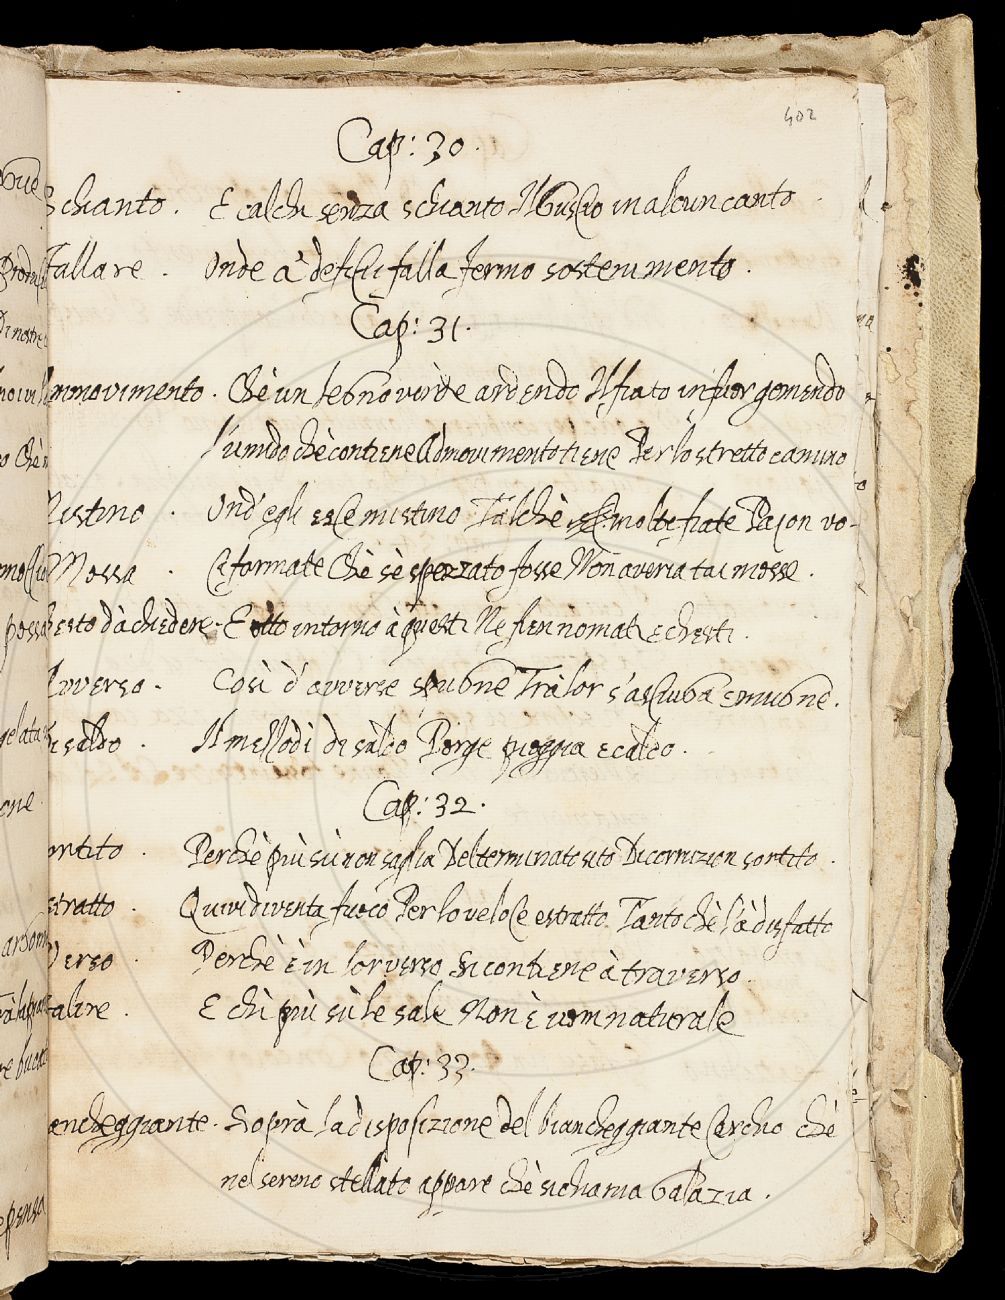 402
Cap: 30.
Schianto. E calchi senza schianto Il Guscio in alcun canto
Fallare. Onde à defiscii falla fermo sostenimento.
Cap: 31.
mmovimento. Chè un legno virde ardendo Il fiato in fuor gemendo
l'umido chè contiene Admovimento tiene Per lo stretto camino
Mistino. Ond'egli esce mistino Talchè molte fiate Pajon vo-
Mossa. ci formate Chè sè spezzato fosse Non averia tai mosse.
esto dà chiedere. E otto intorno à questi Ne fien nomati e chesti.
Avverso. Così d'avverse pugne Trà lor s'aggiuga e mugne.
i saldo. Il mello dì di saldo Porge pioggia e caldo.
Cap: 32.
ortito. Perchè più sù non saglia Del terminato sito Di cornizion sortito.
stratto. Quivi diventa fuoco Per lo veloce estratto Tanto chè l'à disfatto
Verso. Perchè è in lor verso Si contiene à traverso.
alire. E chi più sù le sale Non è uom naturale
Cap: 33.
ancheggiante. Soprà la disposizione del biancheggiante Cerchio chè
nel sereno stellato appare chè si chiama Galazia.